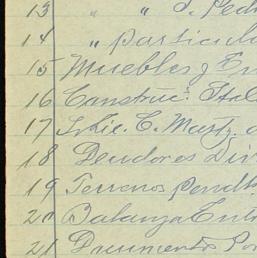 13 " " J. Ped
14 " particula
15 Muebles y En
16 Construc.s Ital
17 C. Martz.
18 Deudores Div
19 Terrenos Pendte
20 Balanza Entr
21 Documentos Po